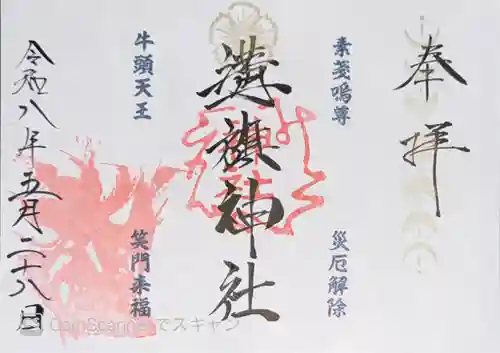 奉拝
素戔嗚尊
災厄解除
溝旗神社
牛頭天王
笑門来福
令和八年五月二十八日
CamScannerでスキャン